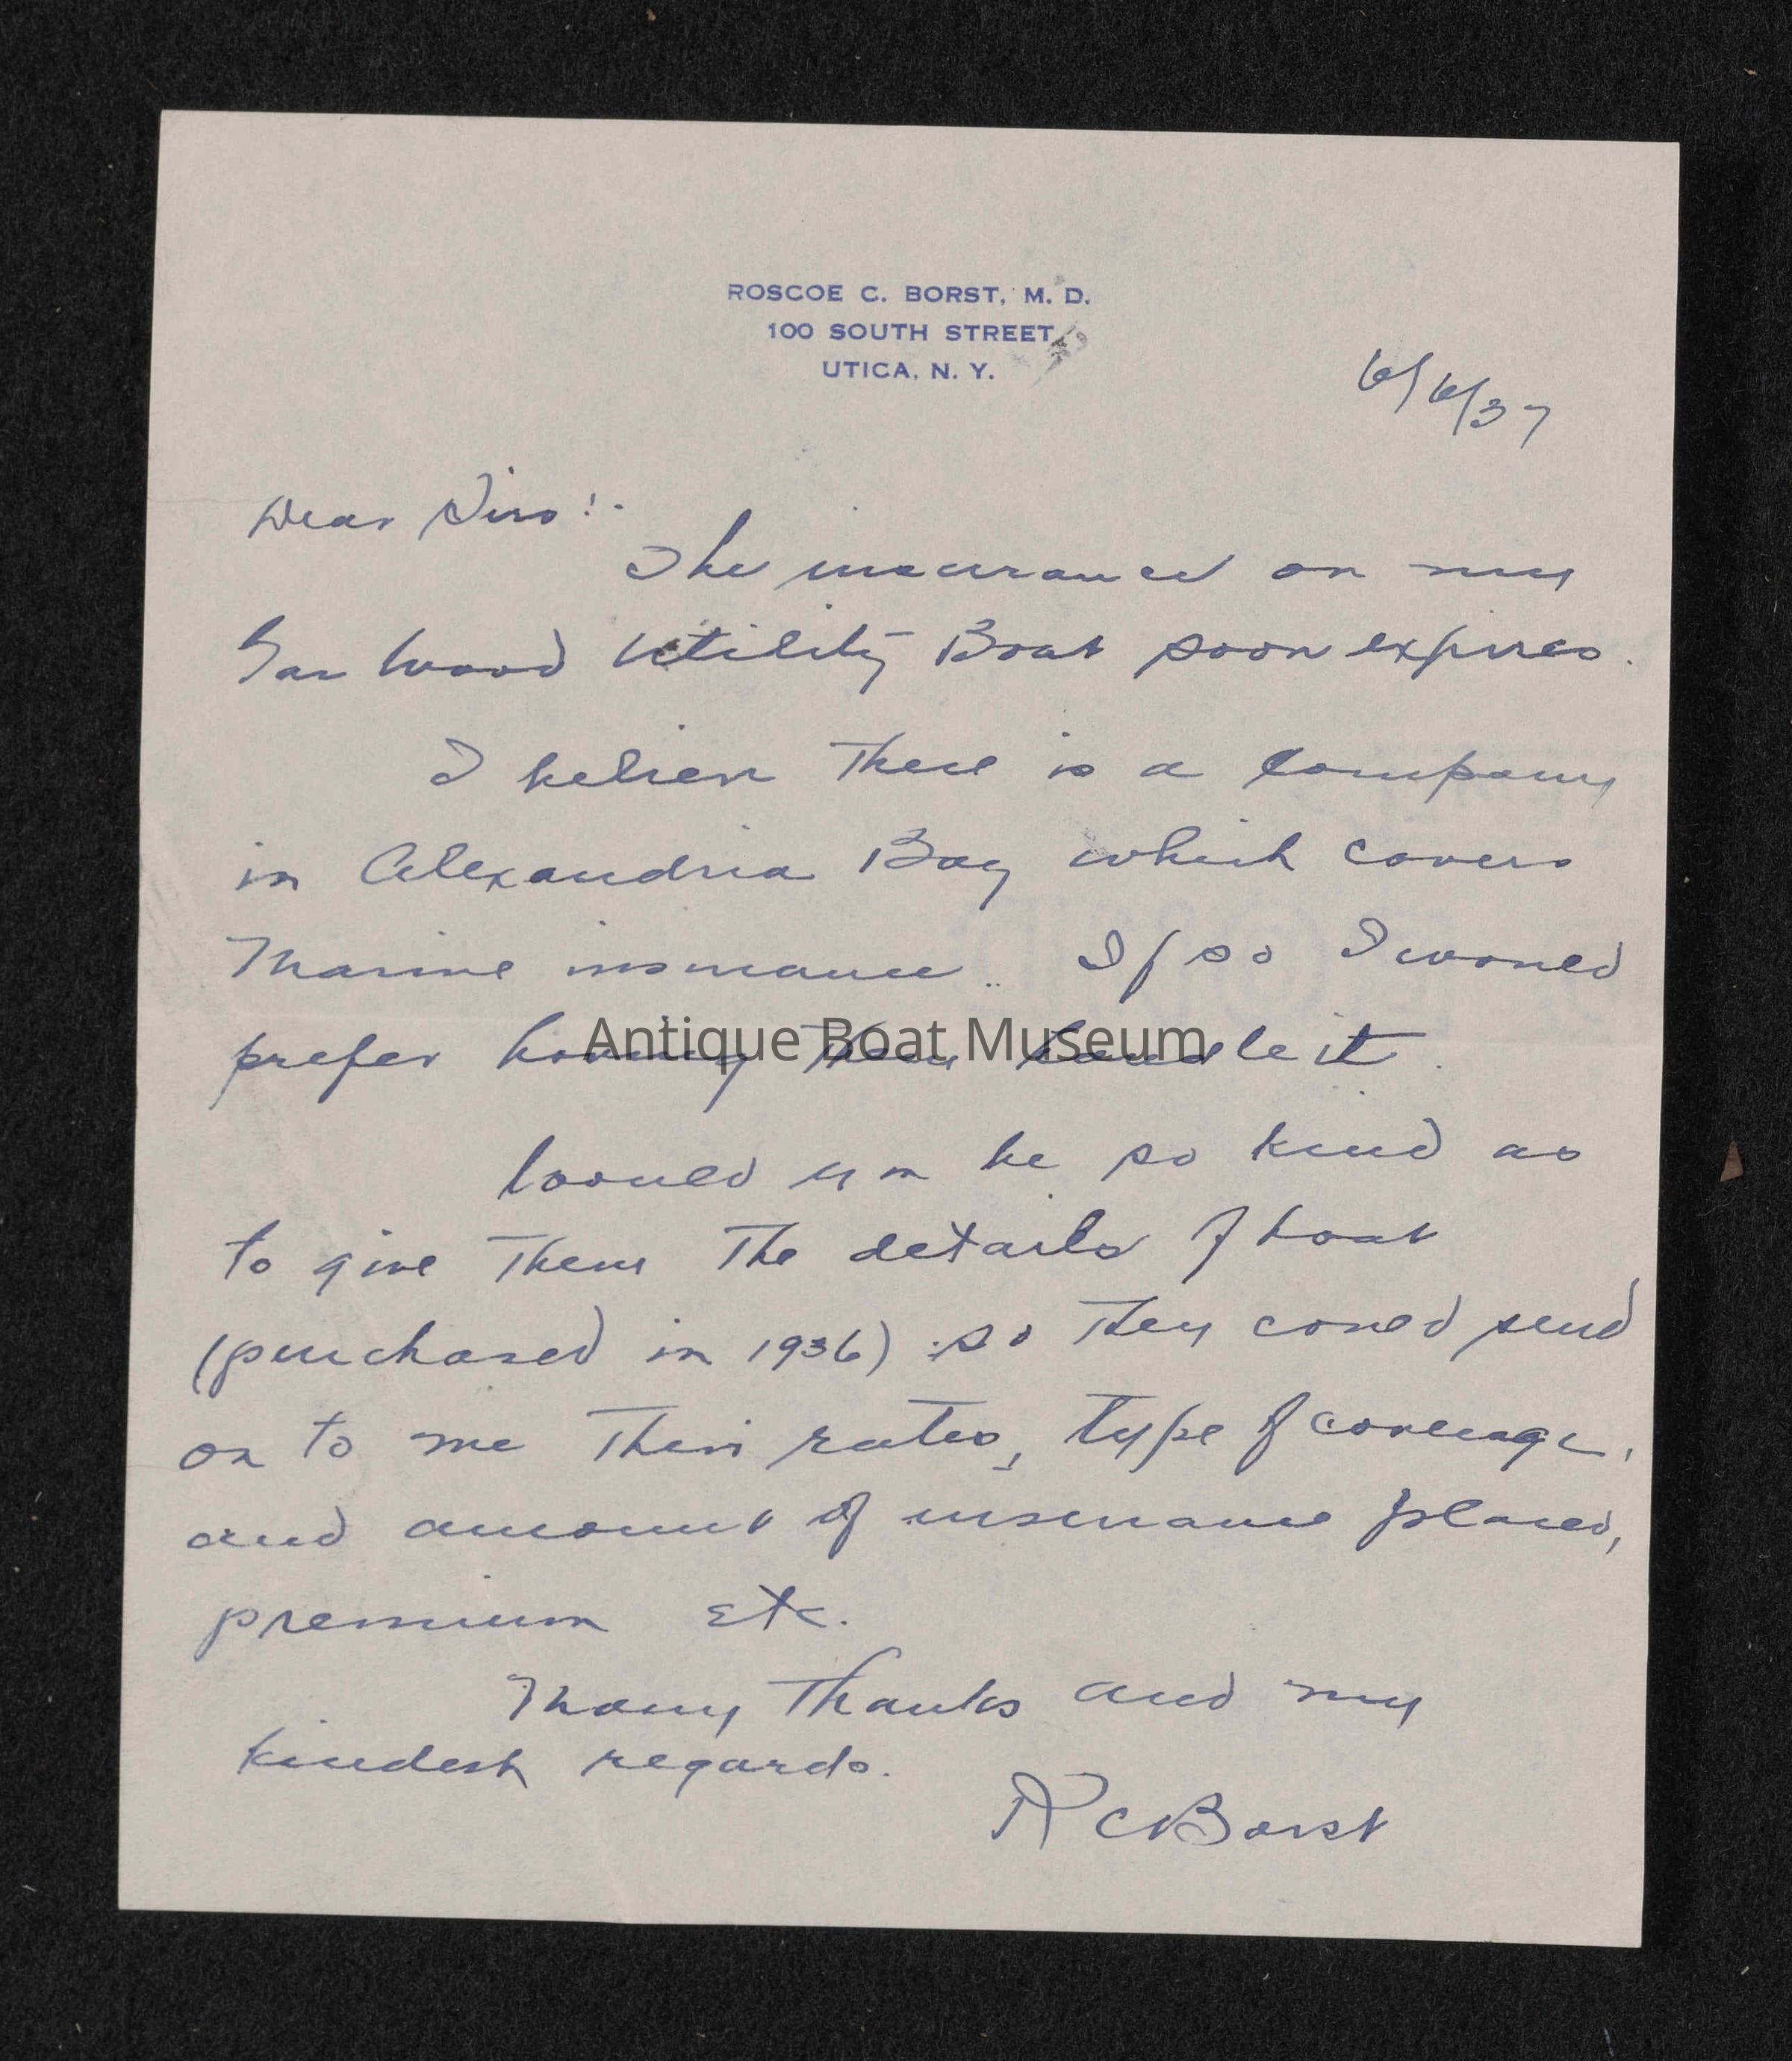 ROSCOE C. BORST, M. D.
100 SOUTH STREET
UTICA, N. Y.
6/6/37
Dear Sirs:-
The insurance on my
Gar Wood Utility Boat soon expires.
I believe there is a company
in Alexandria Bay which covers
Marine insurance. If so I would
prefer having them handle it.
Antique Boat Museum
Would you be so kind as
to give them the details of boat
(purchased in 1936) so they could send
on to me their rates, type of coverage,
and amount of insurance placed,
premium etc.
Many thanks and my
kindest regards.
R C Borst